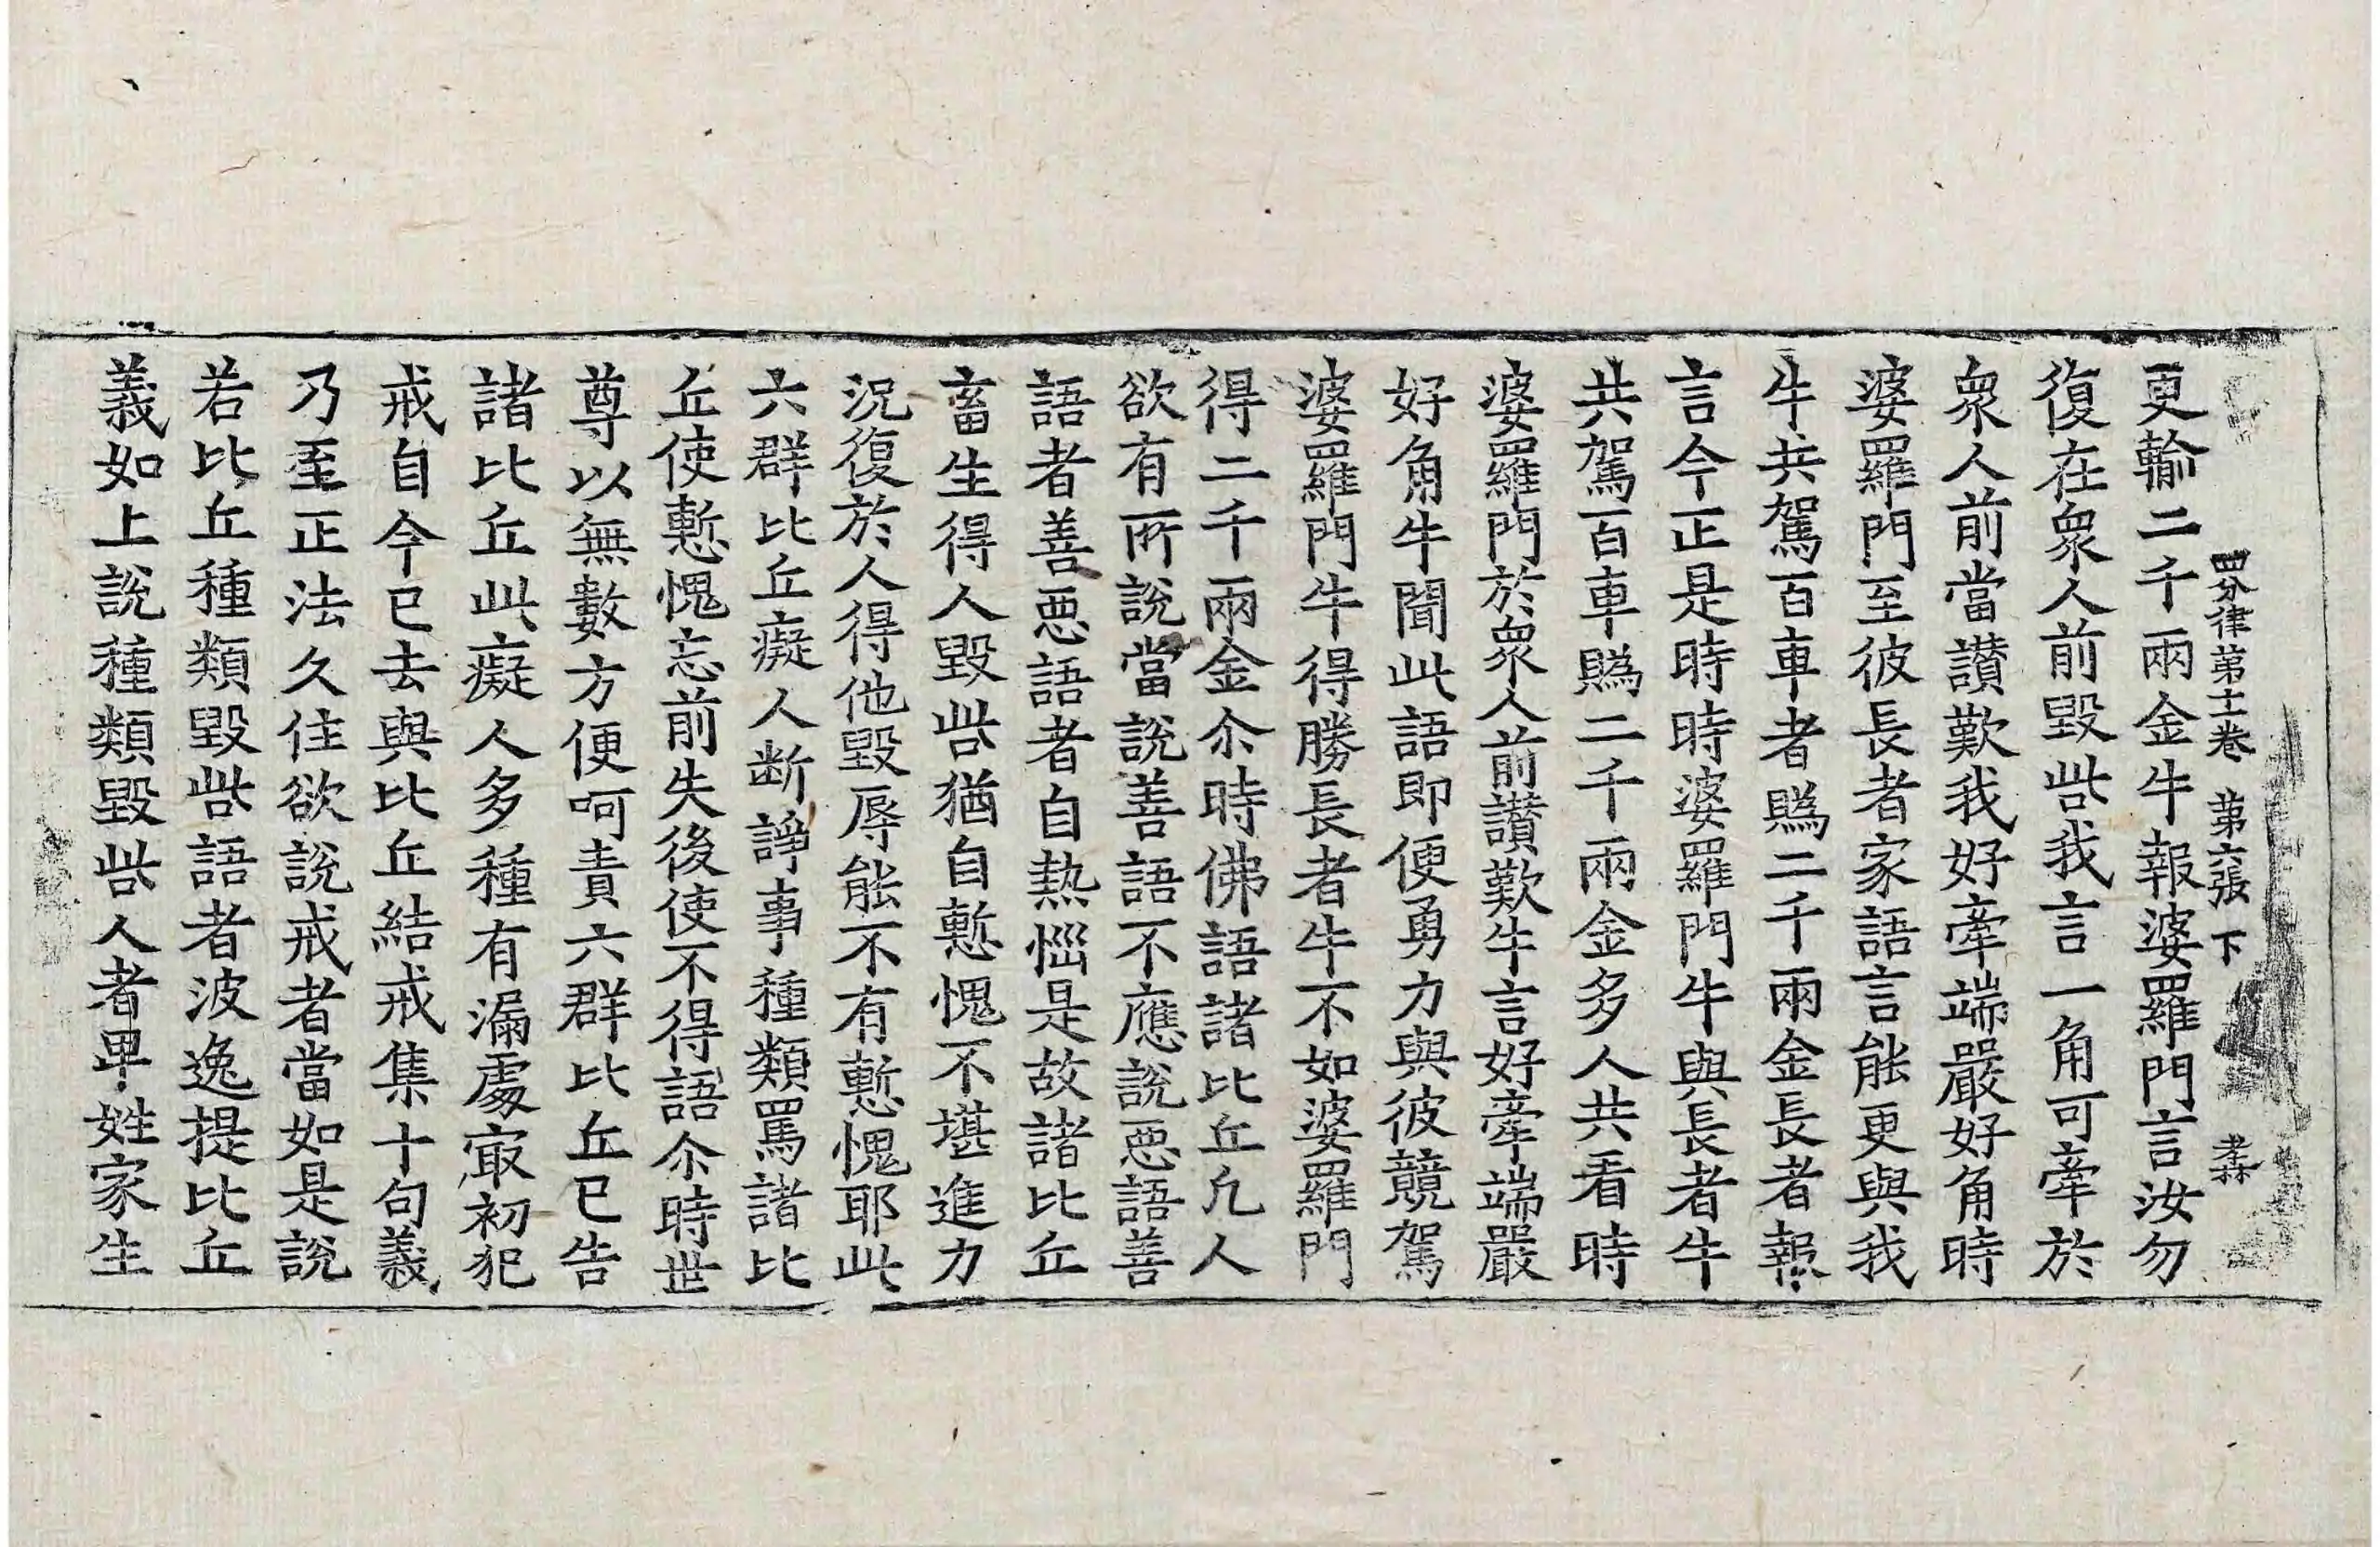 四分律第十一卷 第六張 下 孝
更輸二千兩金牛報婆羅門言汝勿
復在衆人前毀呰我言一角可牽於
衆人前當讃歎我好牽端嚴好角時
婆羅門至彼長者家語言能更與我
牛共駕百車者賭二千兩金長者報
言今正是時時婆羅門牛與長者牛
共駕百車賭二千兩金多人共看時
婆羅門於衆人前讃歎牛言好牽端嚴
好角牛聞此語即便勇力與彼競駕
婆羅門牛得勝長者牛不如婆羅門
得二千兩金尒時佛語諸比丘凢人
欲有所說當說善語不應說惡語善
語者善惡語者自熱惱是故諸比丘
畜生得人毀呰猶自慙愧不堪進力
況復於人得他毀辱能不有慙愧耶此
六群比丘癡人斷諍事種類罵諸比
丘使慙愧忘前失後使不得語尒時世
尊以無數方便呵責六群比丘已告
諸比丘此癡人多種有漏處㝡初犯
戒自今已去與比丘結戒集十句義
乃至正法久住欲說戒者當如是說
若比丘種類毀呰語者波逸提比丘
義如上說種類毀呰人者卑姓家生